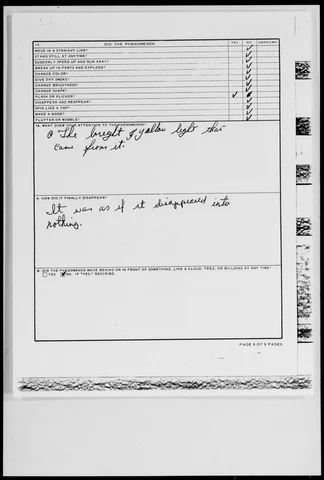 15. DID THE PHENOMENON YES NO UNKNOWN
MOVE IN A STRAIGHT LINE?
STAND STILL AT ANYTIME?
SUDDENLY SPEED UP AND RUN AWAY?
BREAK UP IN PARTS AND EXPLODE?
CHANGE COLOR?
GIVE OFF SMOKE?
CHANGE BRIGHTNESS?
CHANGE SHAPE?
FLASH OR FLICKER?
DISAPPEAR AND REAPPEAR?
SPIN LIKE A TOP?
MAKE A NOISE?
FLUTTER OR WOBBLE?
16. WHAT DREW YOUR ATTENTION TO THE PHENOMENON?
The bright yellow light that
came from it.
A. HOW DID IT FINALLY DISAPPEAR?
It was as if it disappeared into
nothing.
B. DID THE PHENOMENON MOVE BEHIND OR IN FRONT OF SOMETHING, LIKE A CLOUD, TREE, OR BUILDING AT ANY TIME?
YES NO. IF "YES," DESCRIBE.
PAGE 5 OF 9 PAGES